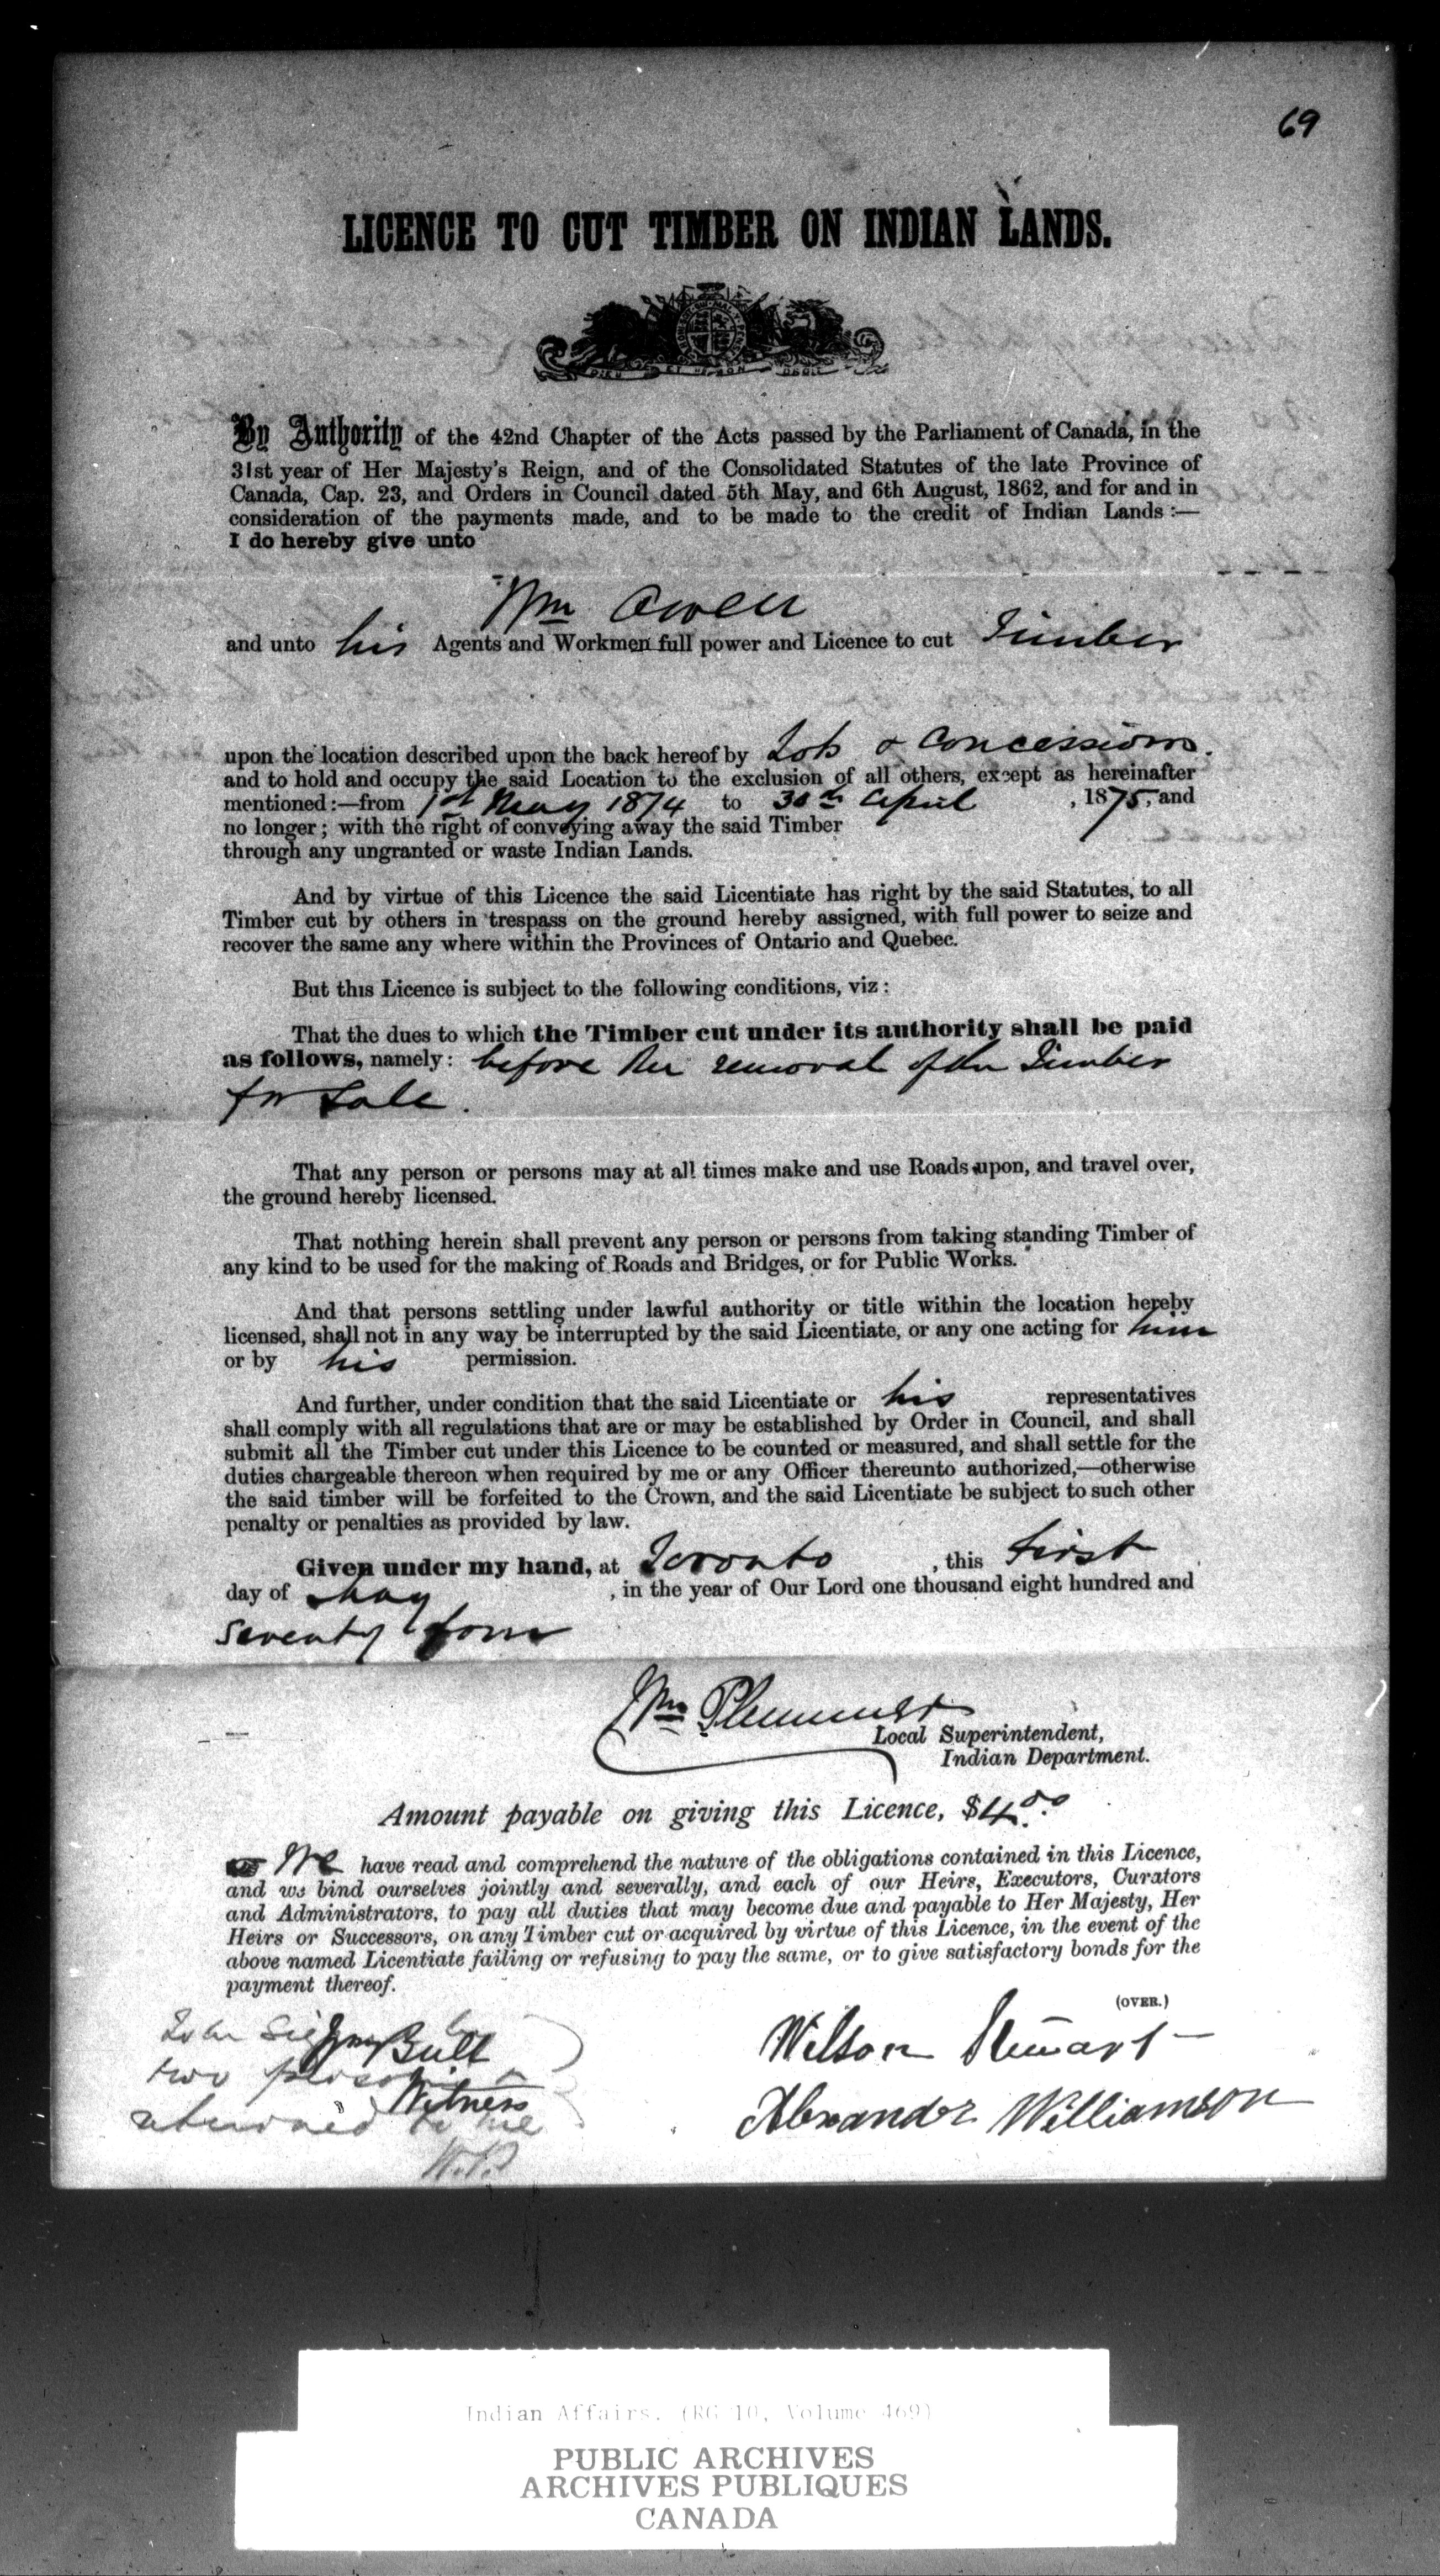 69
LICENCE TO CUT TIMBER ON INDIAN LANDS.
By Authority of the 42nd Chapter of the Acts passed by the Parliament of Canada, in the
31st year of Her Majesty's Reign, and of the Consolidated Statutes of the late Province of
Canada, Cap. 23, and Orders in Council dated 5th May, and 6th August, 1862, and for and in
consideration of the payments made, and to be made to the credit of Indian Lands:—
I do hereby give unto
Wm Owen
and unto his Agents and Workmen full power and Licence to cut Timber
upon the location described upon the back hereof by Lots & Concessions.
and to hold and occupy the said Location to the exclusion of all others, except as hereinafter
mentioned:—from 1st May 1874 to 30th April, 1875, and
no longer; with the right of conveying away the said Timber
through any ungranted or waste Indian Lands.
And by virtue of this Licence the said Licentiate has right by the said Statutes, to all
Timber cut by others in trespass on the ground hereby assigned, with full power to seize and
recover the same any where within the Provinces of Ontario and Quebec.
But this Licence is subject to the following conditions, viz:
That the dues to which the Timber cut under its authority shall be paid
as follows, namely: before the removal of the Timber
for Sale.
That any person or persons may at all times make and use Roads upon, and travel over,
the ground hereby licensed.
That nothing herein shall prevent any person or persons from taking standing Timber of
any kind to be used for the making of Roads and Bridges, or for Public Works.
And that persons settling under lawful authority or title within the location hereby
licensed, shall not in any way be interrupted by the said Licentiate, or any one acting for him
or by his permission.
And further, under condition that the said Licentiate or his representatives
shall comply with all regulations that are or may be established by Order in Council, and shall
submit all the Timber cut under this Licence to be counted or measured, and shall settle for the
duties chargeable thereon when required by me or any Officer thereunto authorized,—otherwise
the said timber will be forfeited to the Crown, and the said Licentiate be subject to such other
penalty or penalties as provided by law.
Given under my hand, at Toronto, this first
day of May, in the year of Our Lord one thousand eight hundred and
Seventy four
Wm Plummer
Local Superintendent,
Indian Department.
Amount payable on giving this Licence, $4.00
We have read and comprehend the nature of the obligations contained in this Licence,
and we bind ourselves jointly and severally, and each of our Heirs, Executors, Curators
and Administrators, to pay all duties that may become due and payable to Her Majesty, Her
Heirs or Successors, on any Timber cut or acquired by virtue of this Licence, in the event of the
above named Licentiate failing or refusing to pay the same, or to give satisfactory bonds for the
payment thereof.
(OVER.)
To be signed by
two persons
returned to me
W.P.
Bull
Witness
Wilson Stewart
Alexander Williamson
Indian Affairs. (RG 10, Volume 469)
PUBLIC ARCHIVES
ARCHIVES PUBLIQUES
CANADA